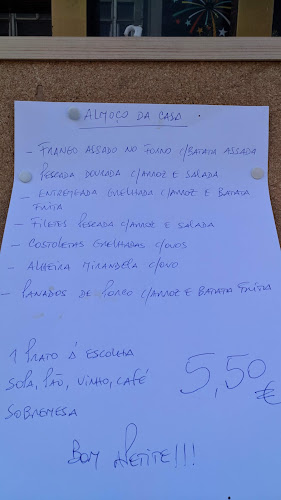 ALMOÇO DA CASA
- FRANGO ASSADO NO FORNO C/BATATA ASSADA
PESCADA DOURADA C/ARROZ E SALADA
- ENTREMEADA GRELHADA C/ARROZ E BATATA
FRITA
- FILETES PESCADA C/ARROZ E SALADA
- COSTOLETAS GRELHADAS C/OVOS
- ALHEIRA MIRANDELA C/OVO
- PANADOS DE PORCO C/ARROZ E BATATA FRITA
1 PRATO À ESCOLHA
SOPA, PÃO, VINHO, CAFÉ
SOBREMESA
5,50 €
BOM APETITE!!!